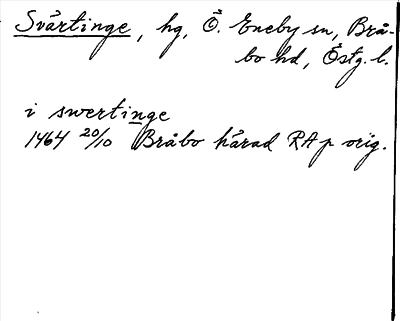 Svärtinge, hg, Ö. Eneby sn, Brå-
bo hd, Östg. l.
i swertinge
1464 20/10 Bråbo härad RAp orig.